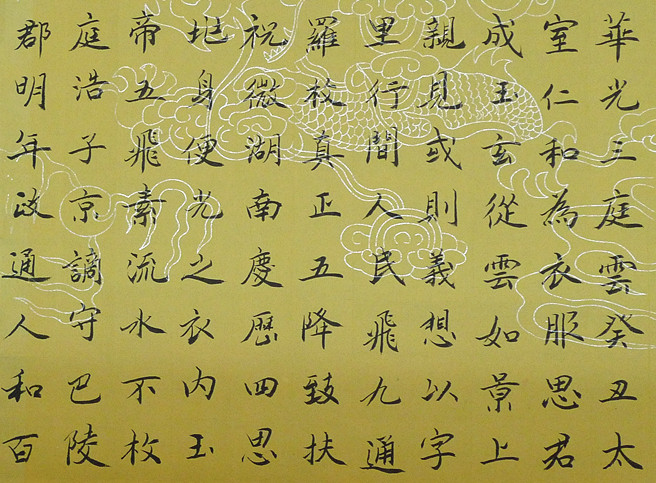 華光三庭雲癸丑太
室仁和為衣服思君
成玉玄從雲如景上
親見或則義想以字
里行間人民飛九通
羅枚真正五降致扶
祝微湖南慶歷四思
地身便光之衣內玉
帝五飛素流水不枚
庭浩子京謫守巴陵
郡明年政通人和百